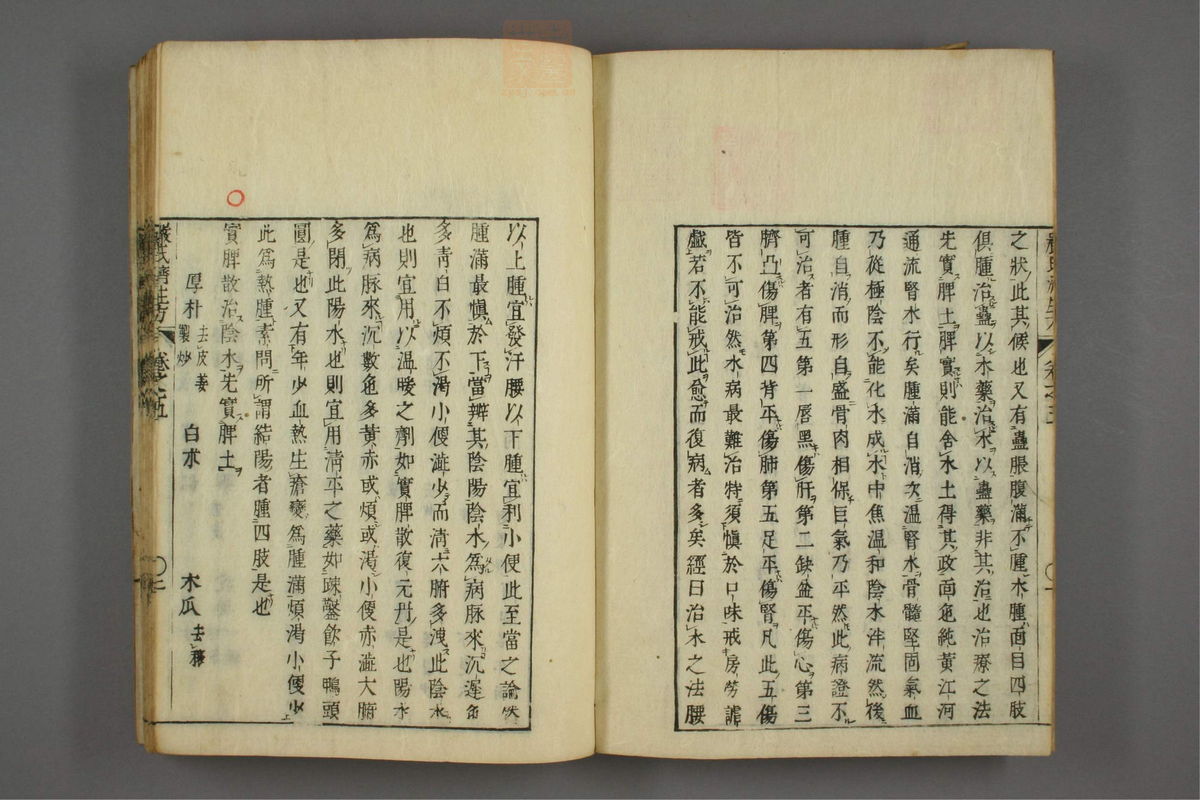 之狀此其候也又有蠱脹腹滿不腫水腫面目四肢
俱腫治蠱以水藥治水以蠱藥非其治也治療之法
先實脾土脾實則能舍水土得其政面色純黃江河
通流腎水行矣腫滿自消次温腎水骨髓堅固氣血
乃從極陰不能化水成水中焦温和陰水泮流然後
腫自消而形自盛骨肉相保巨氣乃平然此病證不
可治者有五第一唇黑傷肝第二缺盆平傷心第三
臍凸傷脾第四背平傷肺第五足平傷腎凡此五傷
皆不可治然水病最難治特須慎於口味戒房勞謔
戲若不能戒此愈而復病者多矣經曰治水之法腰
以上腫宜發汗腰以下腫宜利小便此至當之論然
腫滿最慎於下當辨其陰陽陰水為病脉來沉遲色
多青白不煩不渴小便澁少而清大腑多洩此陰水
也則宜用以温暖之劑如實脾散復元丹是也陽水
為病脉來沉數色多黃赤或煩或渴小便赤澁大腑
多閉此陽水也則宜用清平之藥如疎鑿飲子鴨頭
圓是也又有年少血熱生瘡變為腫滿煩渴小便少
此為熱腫素問所謂結陽者腫四肢是也
實脾散治陰水先實脾土
厚朴去皮姜製炒 白朮 木瓜去穰
嚴氏濟生方 卷之五